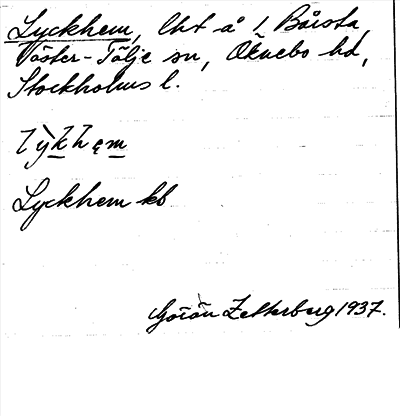 Lyckhem, lht å 1 Bårsta,
Väster-Tälje sn, Öknebo hd,
Stockholms l.
lỳk̲h ęm̲
Lyckhem kb
Göran Zetterberg 1937.